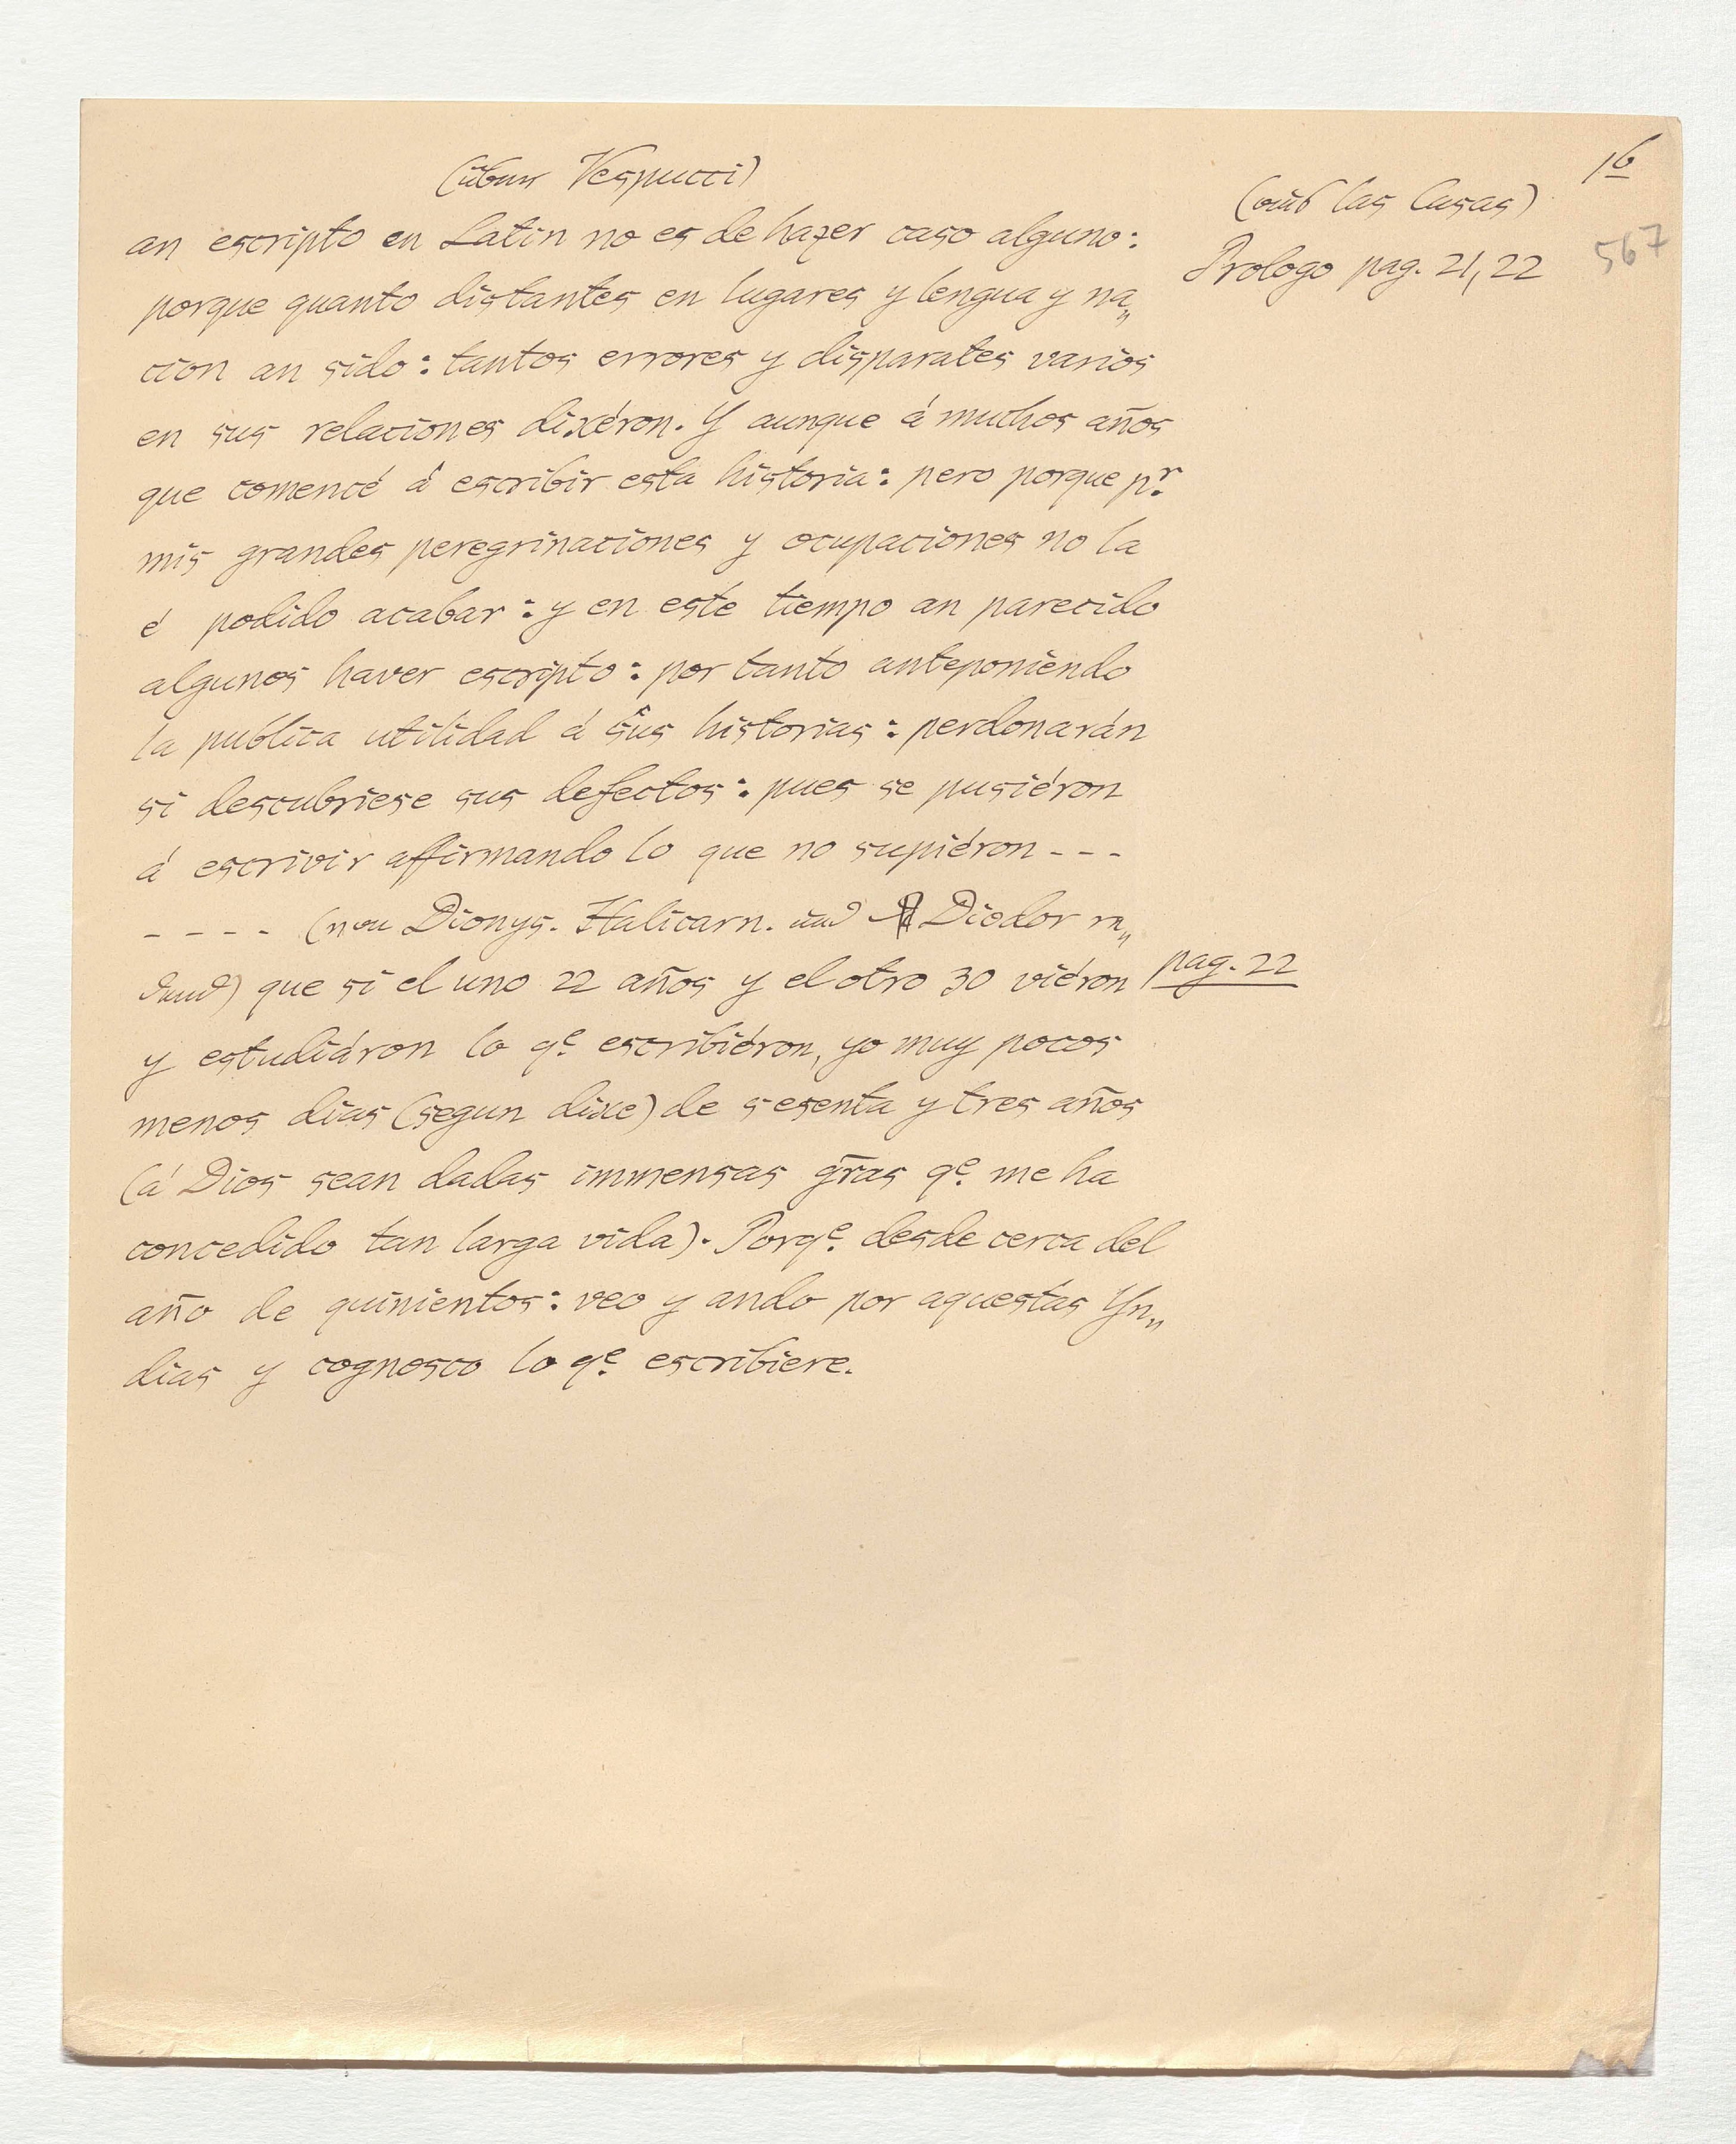 16
(über Vespucci)
(aus las Casas)
567
Prologo pag. 21, 22
an escripto en Latin no es de hazer caso alguno:
porque quanto distantes en lugares y lengua y na„
cion an sido: tantos errores y disparates varios
en sus relaciones dixéron. Y aunque á muchos años
que comencé á escribir esta historia: pero porque pr.
mis grandes peregrinaciones y ocupaciones no la
é podido acabar: y en este tiempo an parecido
algunos haver escripto: por tanto anteponiendo
la publica utilidad á sus historias: perdonarán
si descubriese sus defectos: pues se pusiéron
á escrivir affirmando lo que no supiéron - - -
- - - - (von Dionys. Halicarn. und Diodor re„
dend) que si el uno 22 años y el otro 30 viéron
pag. 22
y estudiáron lo qe. escribiéron, yo muy pocos
menos dias (segun dixe) de sesenta y tres años
(á Dios sean dadas immensas gr̃as qe. me ha
concedido tan larga vida). Porqe. desde cerca del
año de quinientos: veo y ando por aquestas Yn„
dias y cognosco lo qe. escribiere.